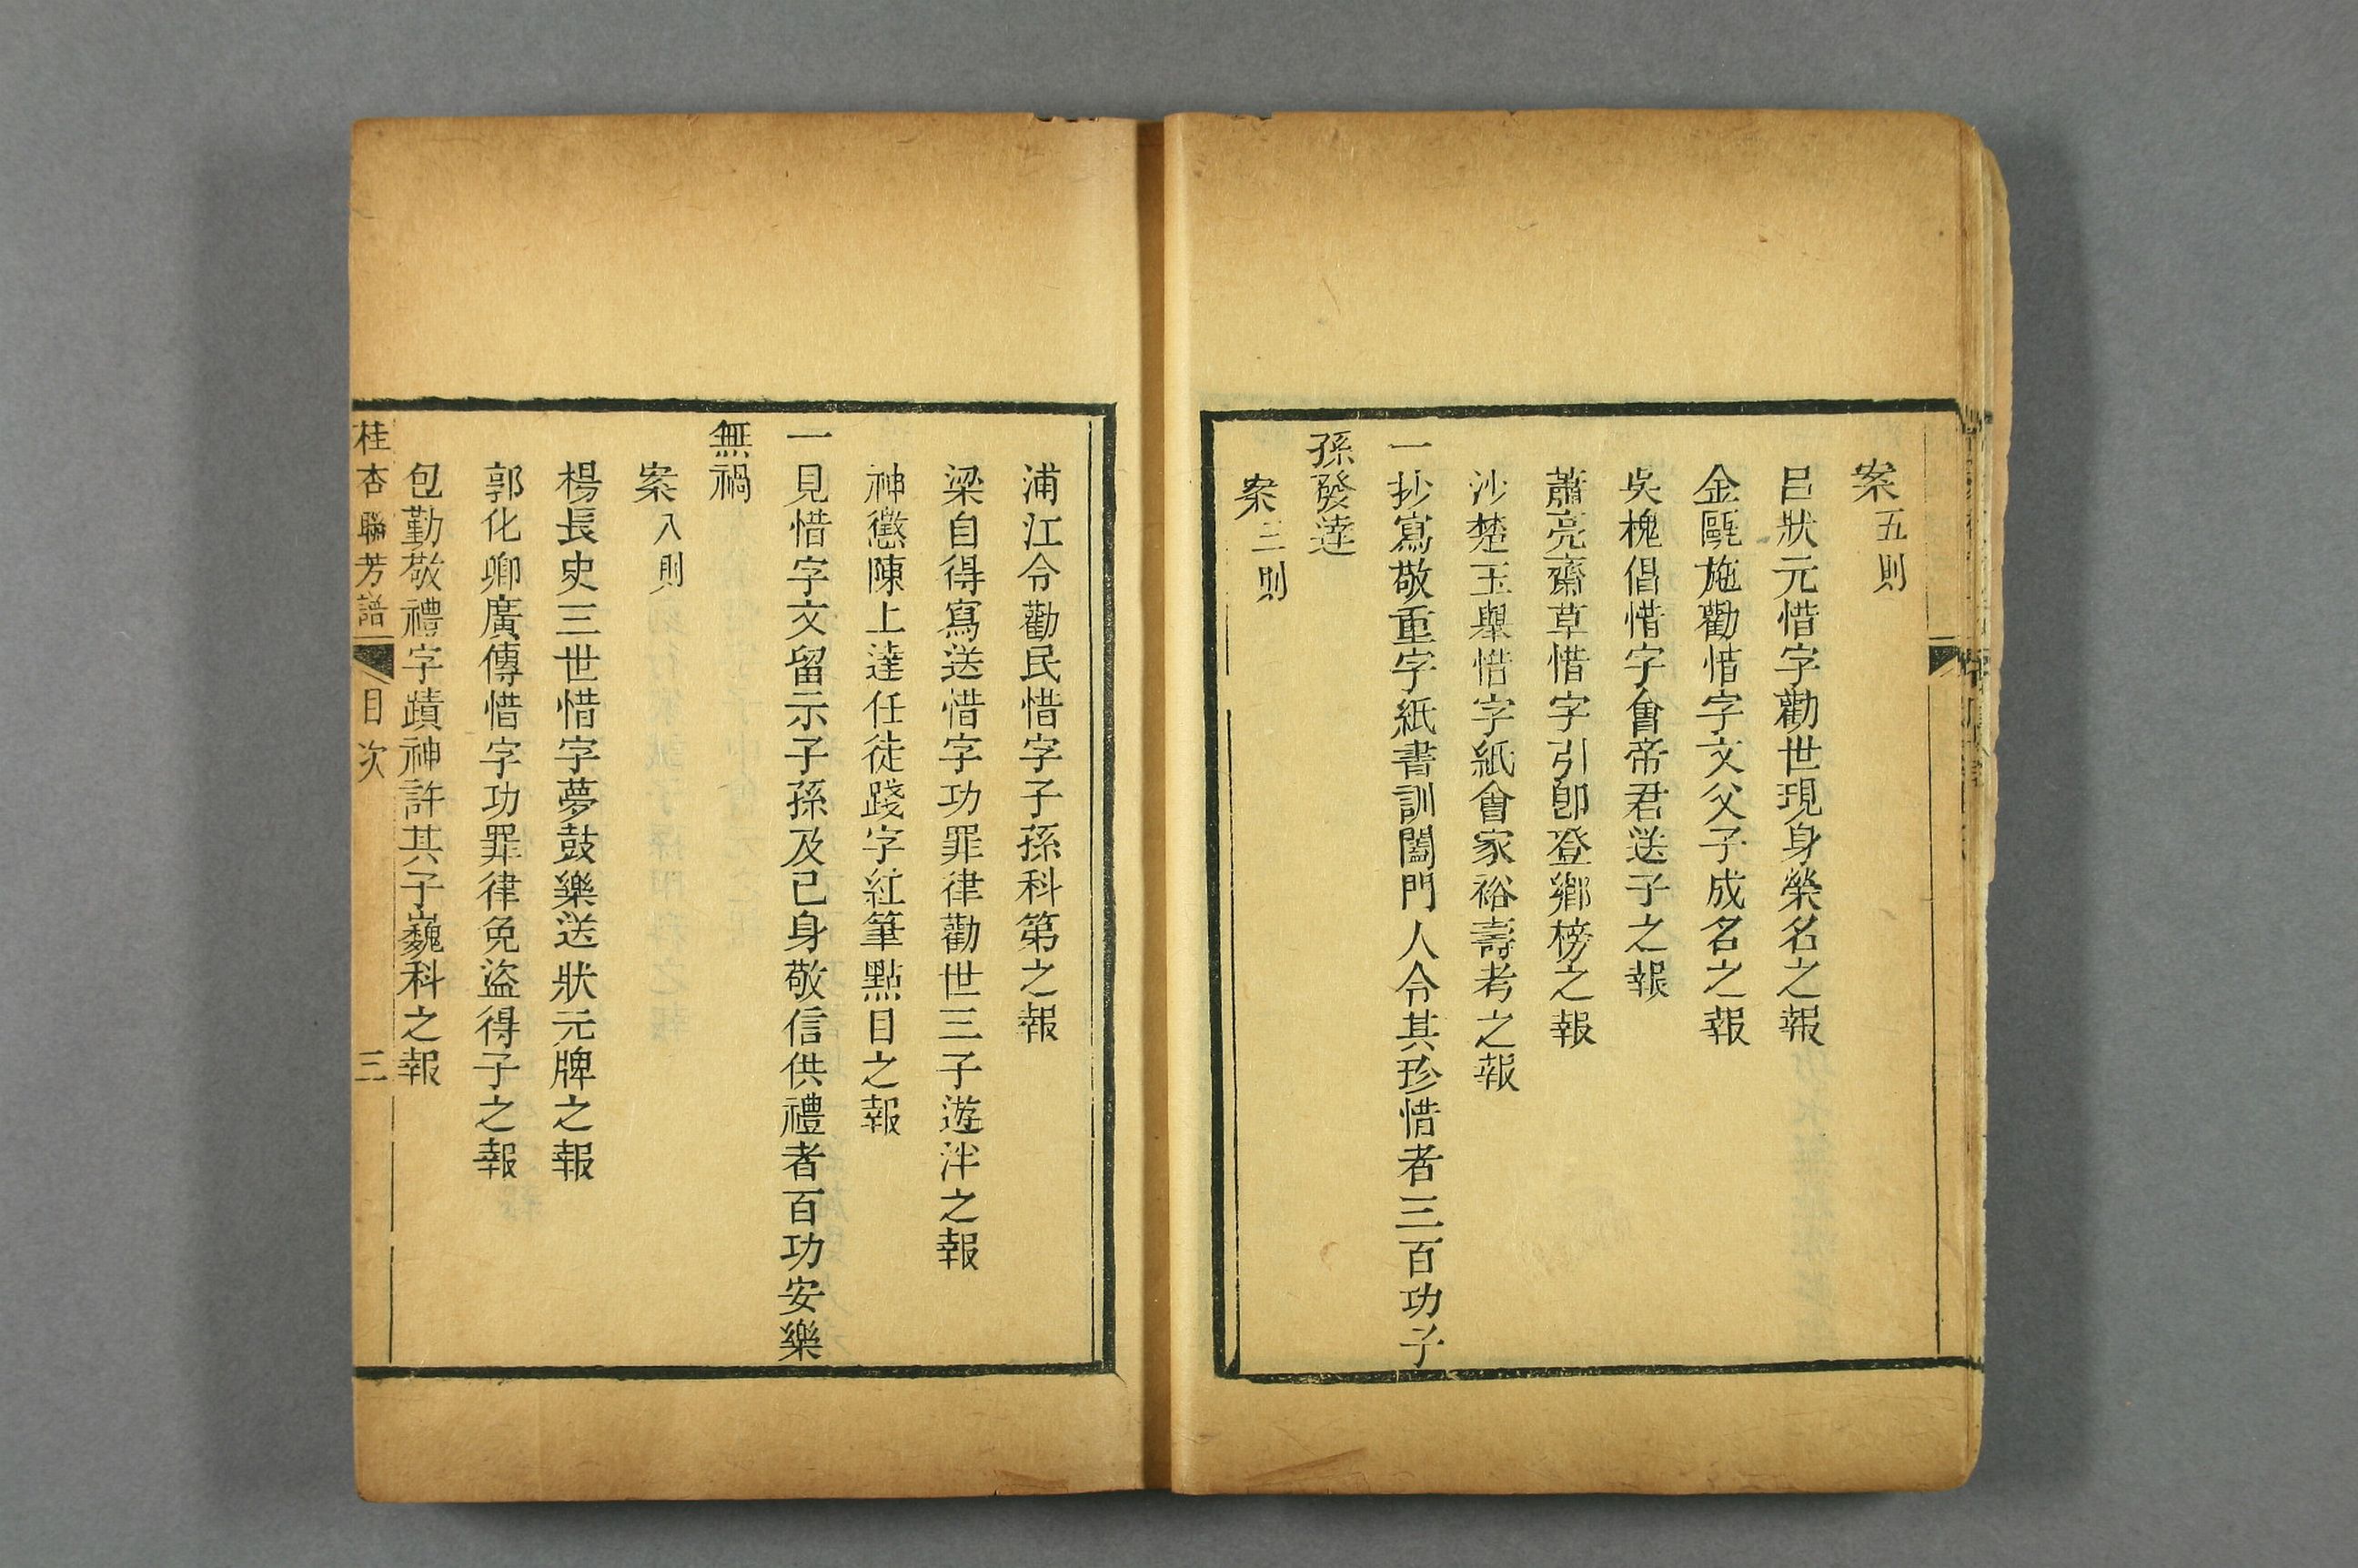 案五則
呂狀元惜字勸世現身榮名之報
金甌施勸惜字文父子成名之報
吳槐倡惜字會帝君送子之報
蕭亮齋草惜字引卽登鄉榜之報
沙楚玉舉惜字紙會家裕壽考之報
一抄寫敬重字紙書訓闔門人令其珍惜者三百功子
孫發達
案三則
浦江令勸民惜字子孫科第之報
梁自得寫送惜字功罪律勸世三子遊泮之報
神懲陳上達任徒踐字紅筆點目之報
一見惜字文留示子孫及己身敬信供禮者百功安樂
無禍
案八則
楊長史三世惜字夢鼓樂送狀元牌之報
郭化卿廣傳惜字功罪律免盜得子之報
包勤敬禮字蹟神許其子巍科之報
桂杏聯芳譜 目次 三